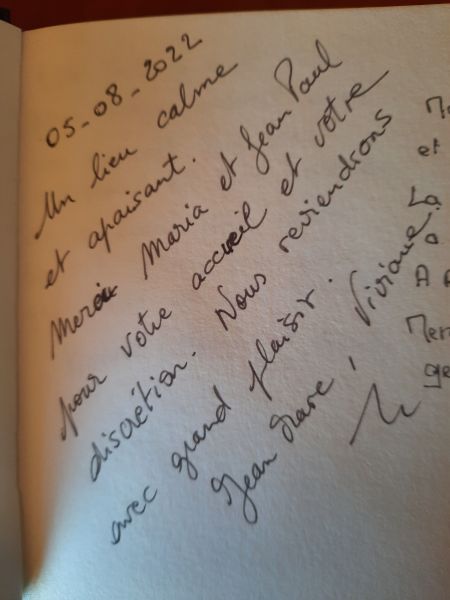 05-08-2022
Un lieu calme
et apaisant.
Merci Maria et Jean Paul
pour votre accueil et votre
discrétion. Nous reviendrons
avec grand plaisir.
Jean Marc, Viviane.
et